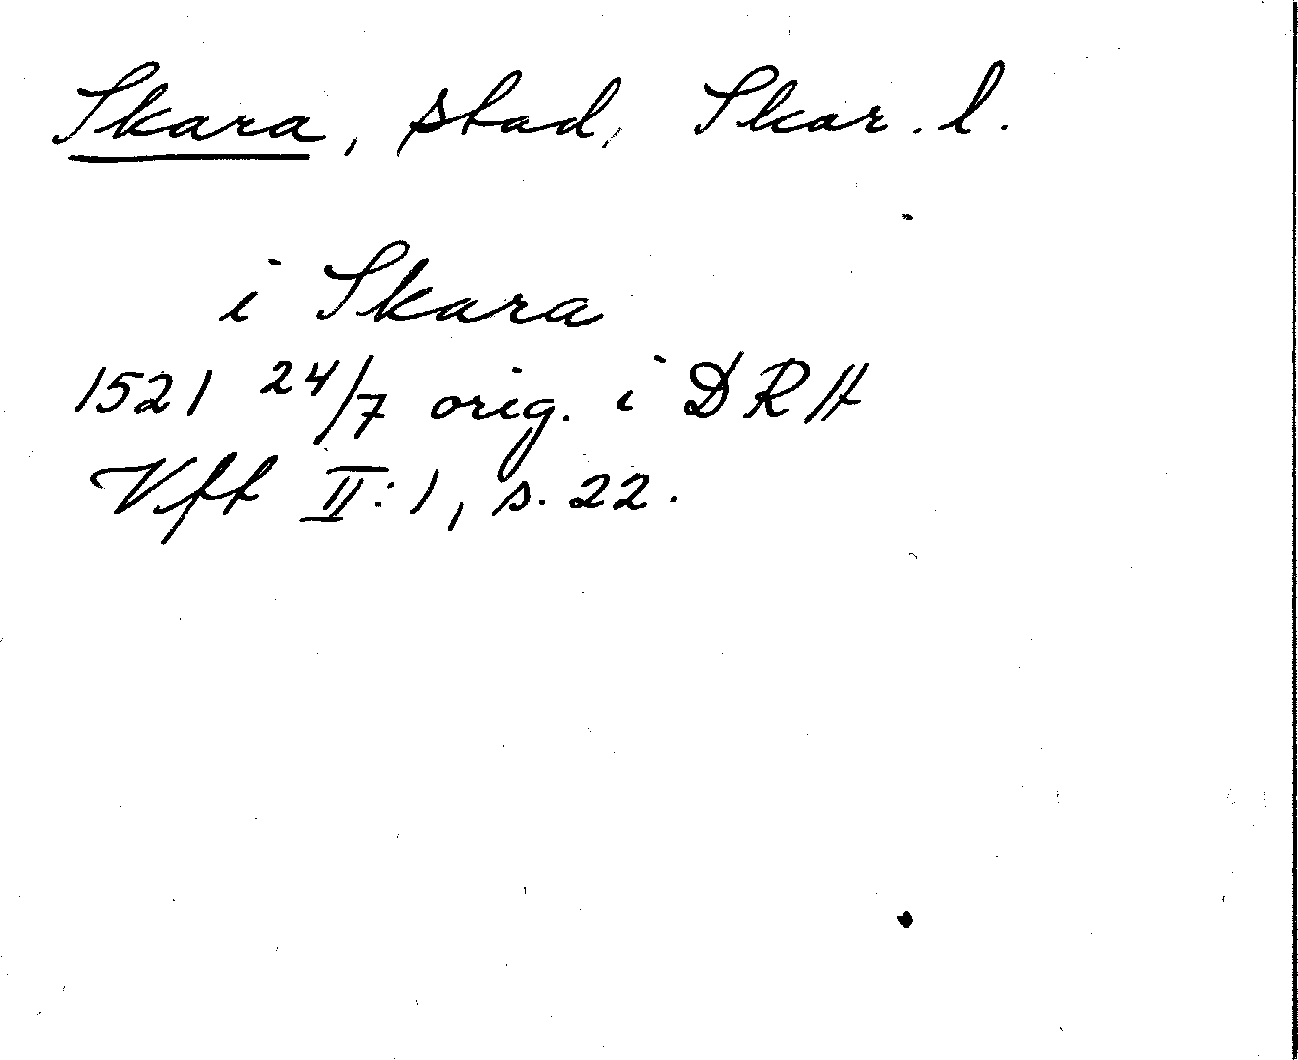 Skara, stad, Skar. l.
i Skara
1521 24/7 orig. i DRA
Vff II:1, s. 22.